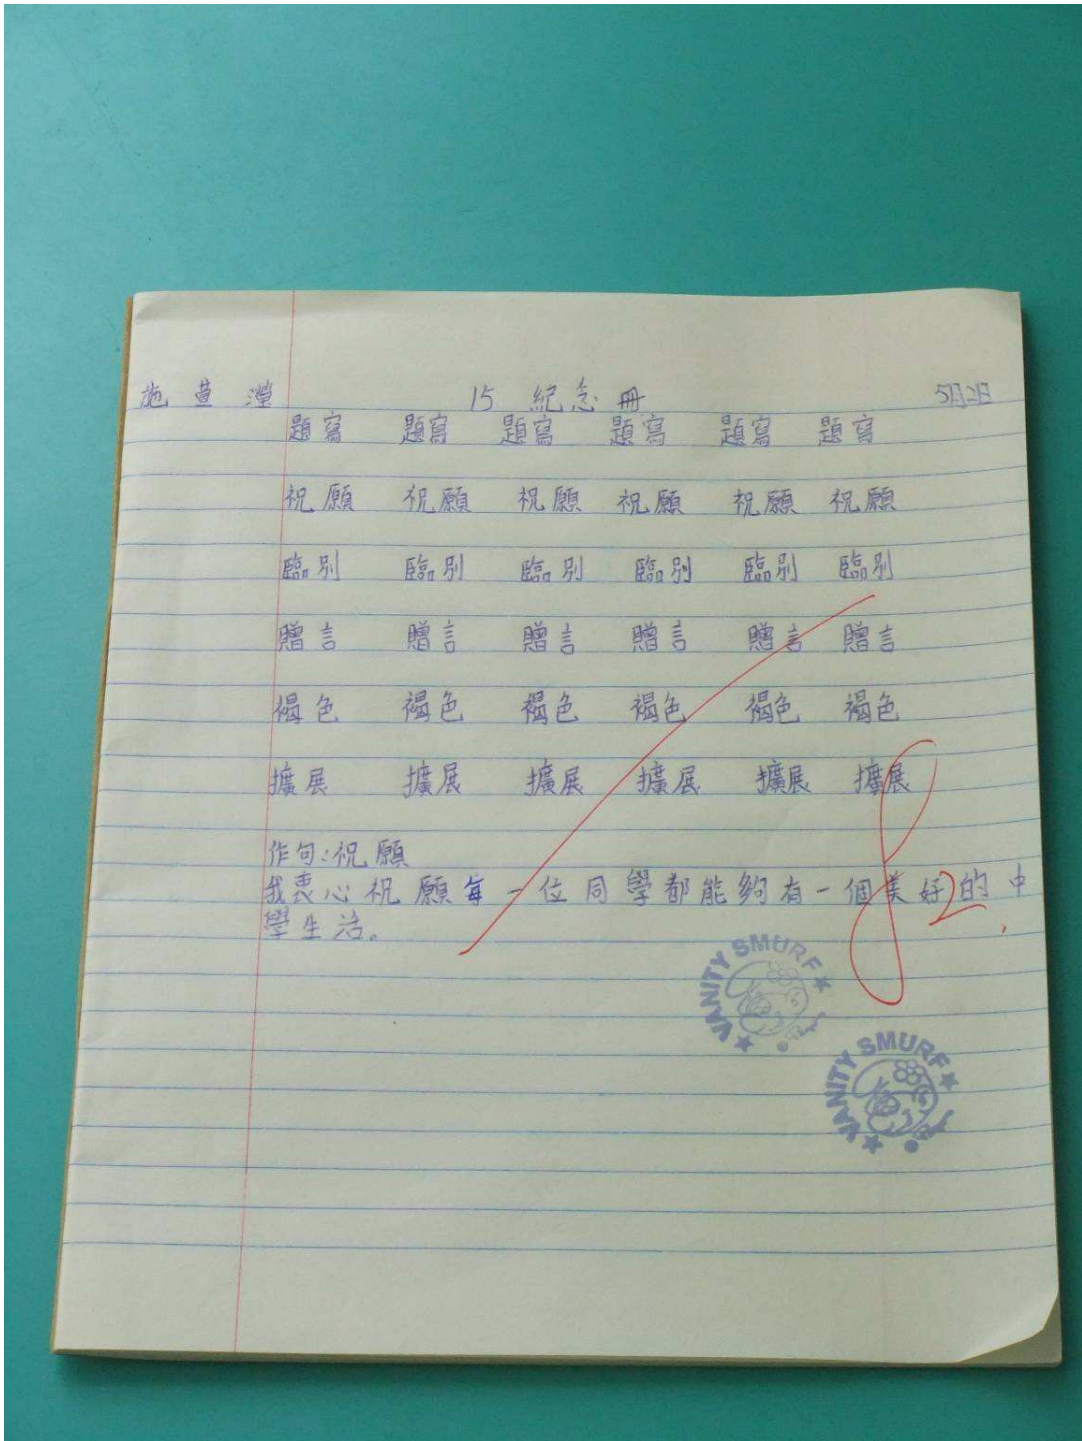 施萱瀅 15 紀念冊 5月2日
題寫 題寫 題寫 題寫 題寫 題寫
祝願 祝願 祝願 祝願 祝願 祝願
臨別 臨別 臨別 臨別 臨別 臨別
贈言 贈言 贈言 贈言 贈言 贈言
褐色 褐色 褐色 褐色 褐色 褐色
擴展 擴展 擴展 擴展 擴展 擴展
作句:祝願
我衷心祝願每一位同學都能夠有一個美好的中
學生活。
82
VANITY SMURF
VANITY SMURF